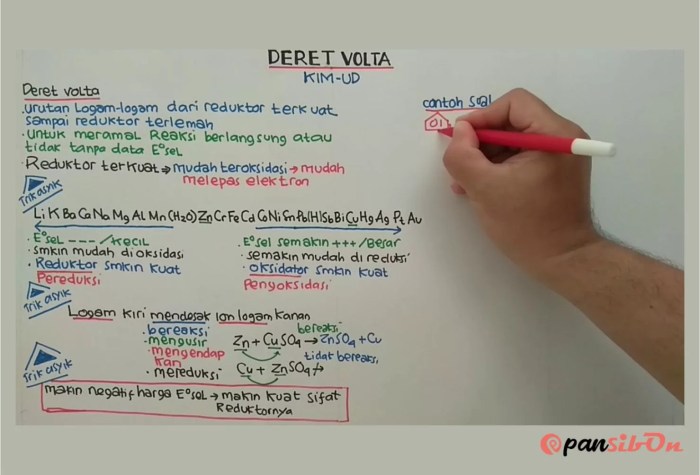 DERET VOLTA
KIM-UD
Deret volta
.urutan Logam-logam dari reduktor terkuat
sampai reduktor terlemah
.untuk meramal Reaksi berlangsung atau
tidak tanpa data E°sel
.Reduktor terkuat→mudah teroksidasi→mudah
melepas elektron
Trik asyik
Li K Ba Ca Na Mg Al Mn (H2O) Zn Cr Fe Cd Co Ni Sn Pb (H) Sb Bi Cu Hg Ag Pt Au
.E°sel ---/kecil
.smkin mudah dioksidasi
.Reduktor smkin kuat
Pereduksi
.E°sel semakin +++/Besar
.semakin mudah di reduksi
.oksidator smkin kuat
Pengoksidasi
Trik asyik
Logam kiri mendesak ion logam kanan
.bereaksi
.mengusir
.mengendap
kan
.mereduksi
bereaksi
Zn + CuSO4 → ZnSO4 + Cu
tidat bereaksi
Cu + ZnSO4 ↛
Trik asyik
makin negatif harga E°sel → makin kuat sifat
Reduktornya
contoh soal
01
@pansibOn